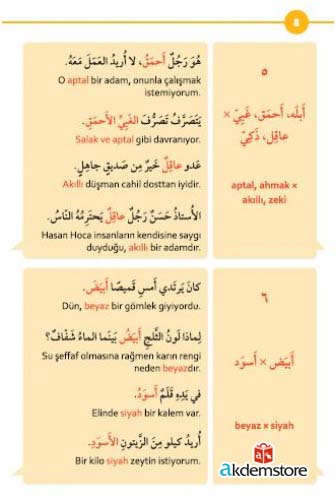 8
هُوَ رَجُلٌ أَحمَقُ، لا أُرِيدُ العَمَلَ مَعَهُ.
O aptal bir adam, onunla çalışmak
istemiyorum.
يَتَصَرَّفُ تَصَرُّفَ الغَبِيِّ الأَحمَقِ.
Salak ve aptal gibi davranıyor.
عَدو عاقِلٌ خَيرٌ مِن صَديقٍ جاهِلٍ.
Akıllı düşman cahil dosttan iyidir.
الأُستاذُ حَسَنٌ رَجُلٌ عاقِلٌ يَحتَرِمُهُ النّاسُ.
Hasan Hoca insanların kendisine saygı
duyduğu, akıllı bir adamdır.
٥
أَبلَه، أَحمَق، غَبِيّ ×
عاقِل، ذَكِيّ
aptal, ahmak ×
akıllı, zeki
كانَ يَرتَدي أَمسِ قَميصًا أَبيَضَ.
Dün, beyaz bir gömlek giyiyordu.
لِماذا لَونُ الثَّلجِ أَبيَضُ بَينَما الماءُ شَفّافٌ؟
Su şeffaf olmasına rağmen karın rengi
neden beyazdır.
في يَدِهِ قَلَمٌ أَسوَدُ.
Elinde siyah bir kalem var.
أُريدُ كيلو مِنَ الزَّيتونِ الأَسوَدِ.
Bir kilo siyah zeytin istiyorum.
٦
أَبيَض × أَسوَد
beyaz × siyah
akdemstore